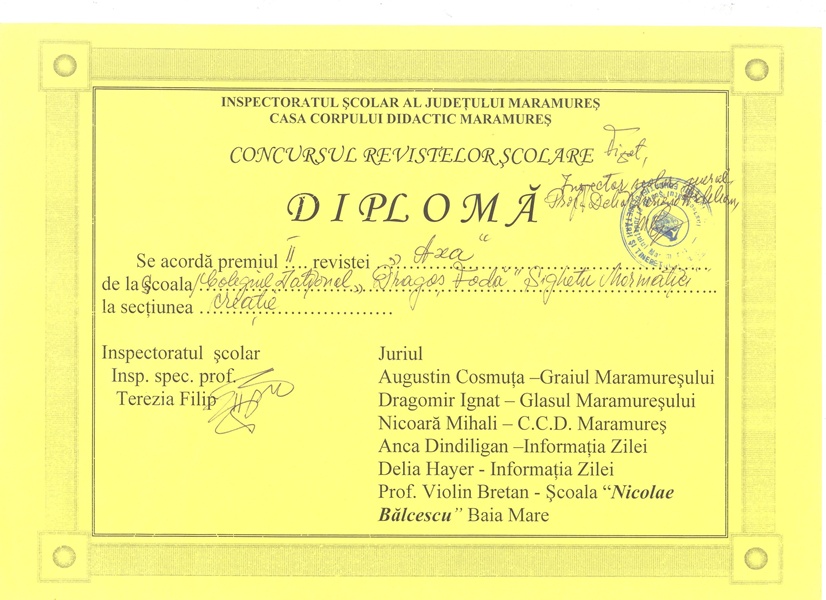 INSPECTORATUL ŞCOLAR AL JUDEŢULUI MARAMUREŞ
CASA CORPULUI DIDACTIC MARAMUREŞ
CONCURSUL REVISTELOR ŞCOLARE
Vizat,
Inspector şcolar general
Prof. Delia
DIPLOMĂ
Se acordă premiul II revistei „Axa”
de la Şcoala/Colegiul Naţional „Dragoş Vodă” Sighetu Marmaţiei
la secţiunea creaţie
Inspectoratul şcolar
Insp. spec. prof.
Terezia Filip
Juriul
Augustin Cosmuţa –Graiul Maramureşului
Dragomir Ignat – Glasul Maramureşului
Nicoară Mihali – C.C.D. Maramureş
Anca Dindiligan –Informaţia Zilei
Delia Hayer - Informaţia Zilei
Prof. Violin Bretan - Şcoala “Nicolae
Bălcescu” Baia Mare